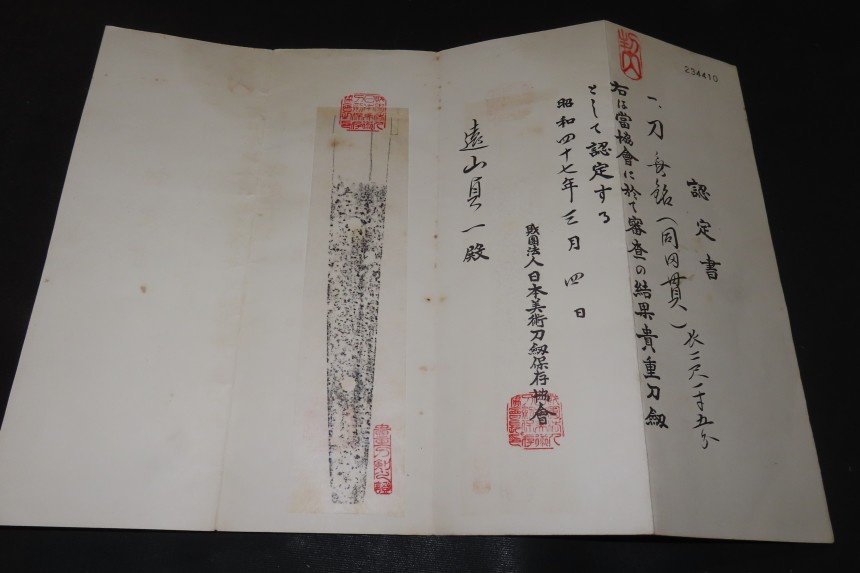 234410
認定書
一、刀 無銘（同田貫）長二尺一寸五分
右は當協會に於て審査の結果貴重刀劔
として認定する
昭和四十七年三月四日
財團法人日本美術刀劔保存協會
遠山員一殿